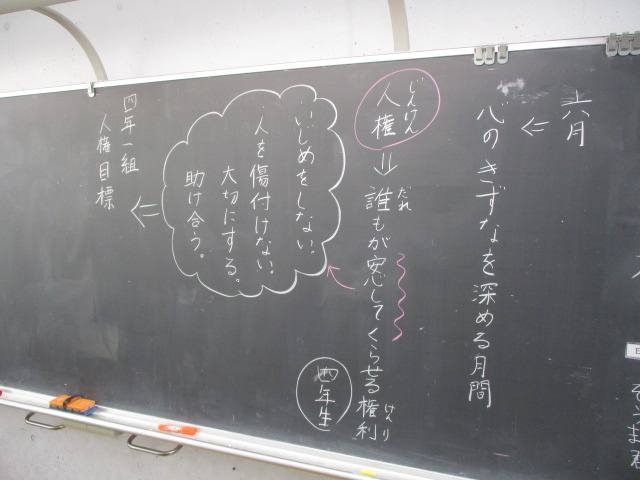 六月
⇐
心のきずなを深める月間
じんけん
人権
⇓
だれ
誰もが安心してくらせる権利
けんり
四年生
いじめをしない。
人を傷付けない。
大切にする。
助け合う。
⇐
四年一組
人権目標